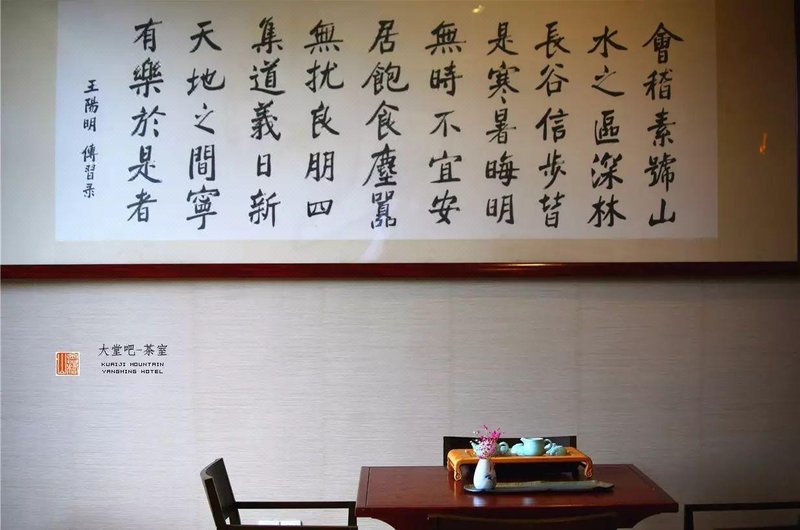 會稽素號山
水之區深林
長谷信步皆
是寒暑晦明
無時不宜安
居飽食塵囂
無扰良朋四
集道義日新
天地之間寧
有樂於是者
王陽明 傳習录
大堂吧-茶室
KUAIJI MOUNTAIN
YANGMING HOTEL